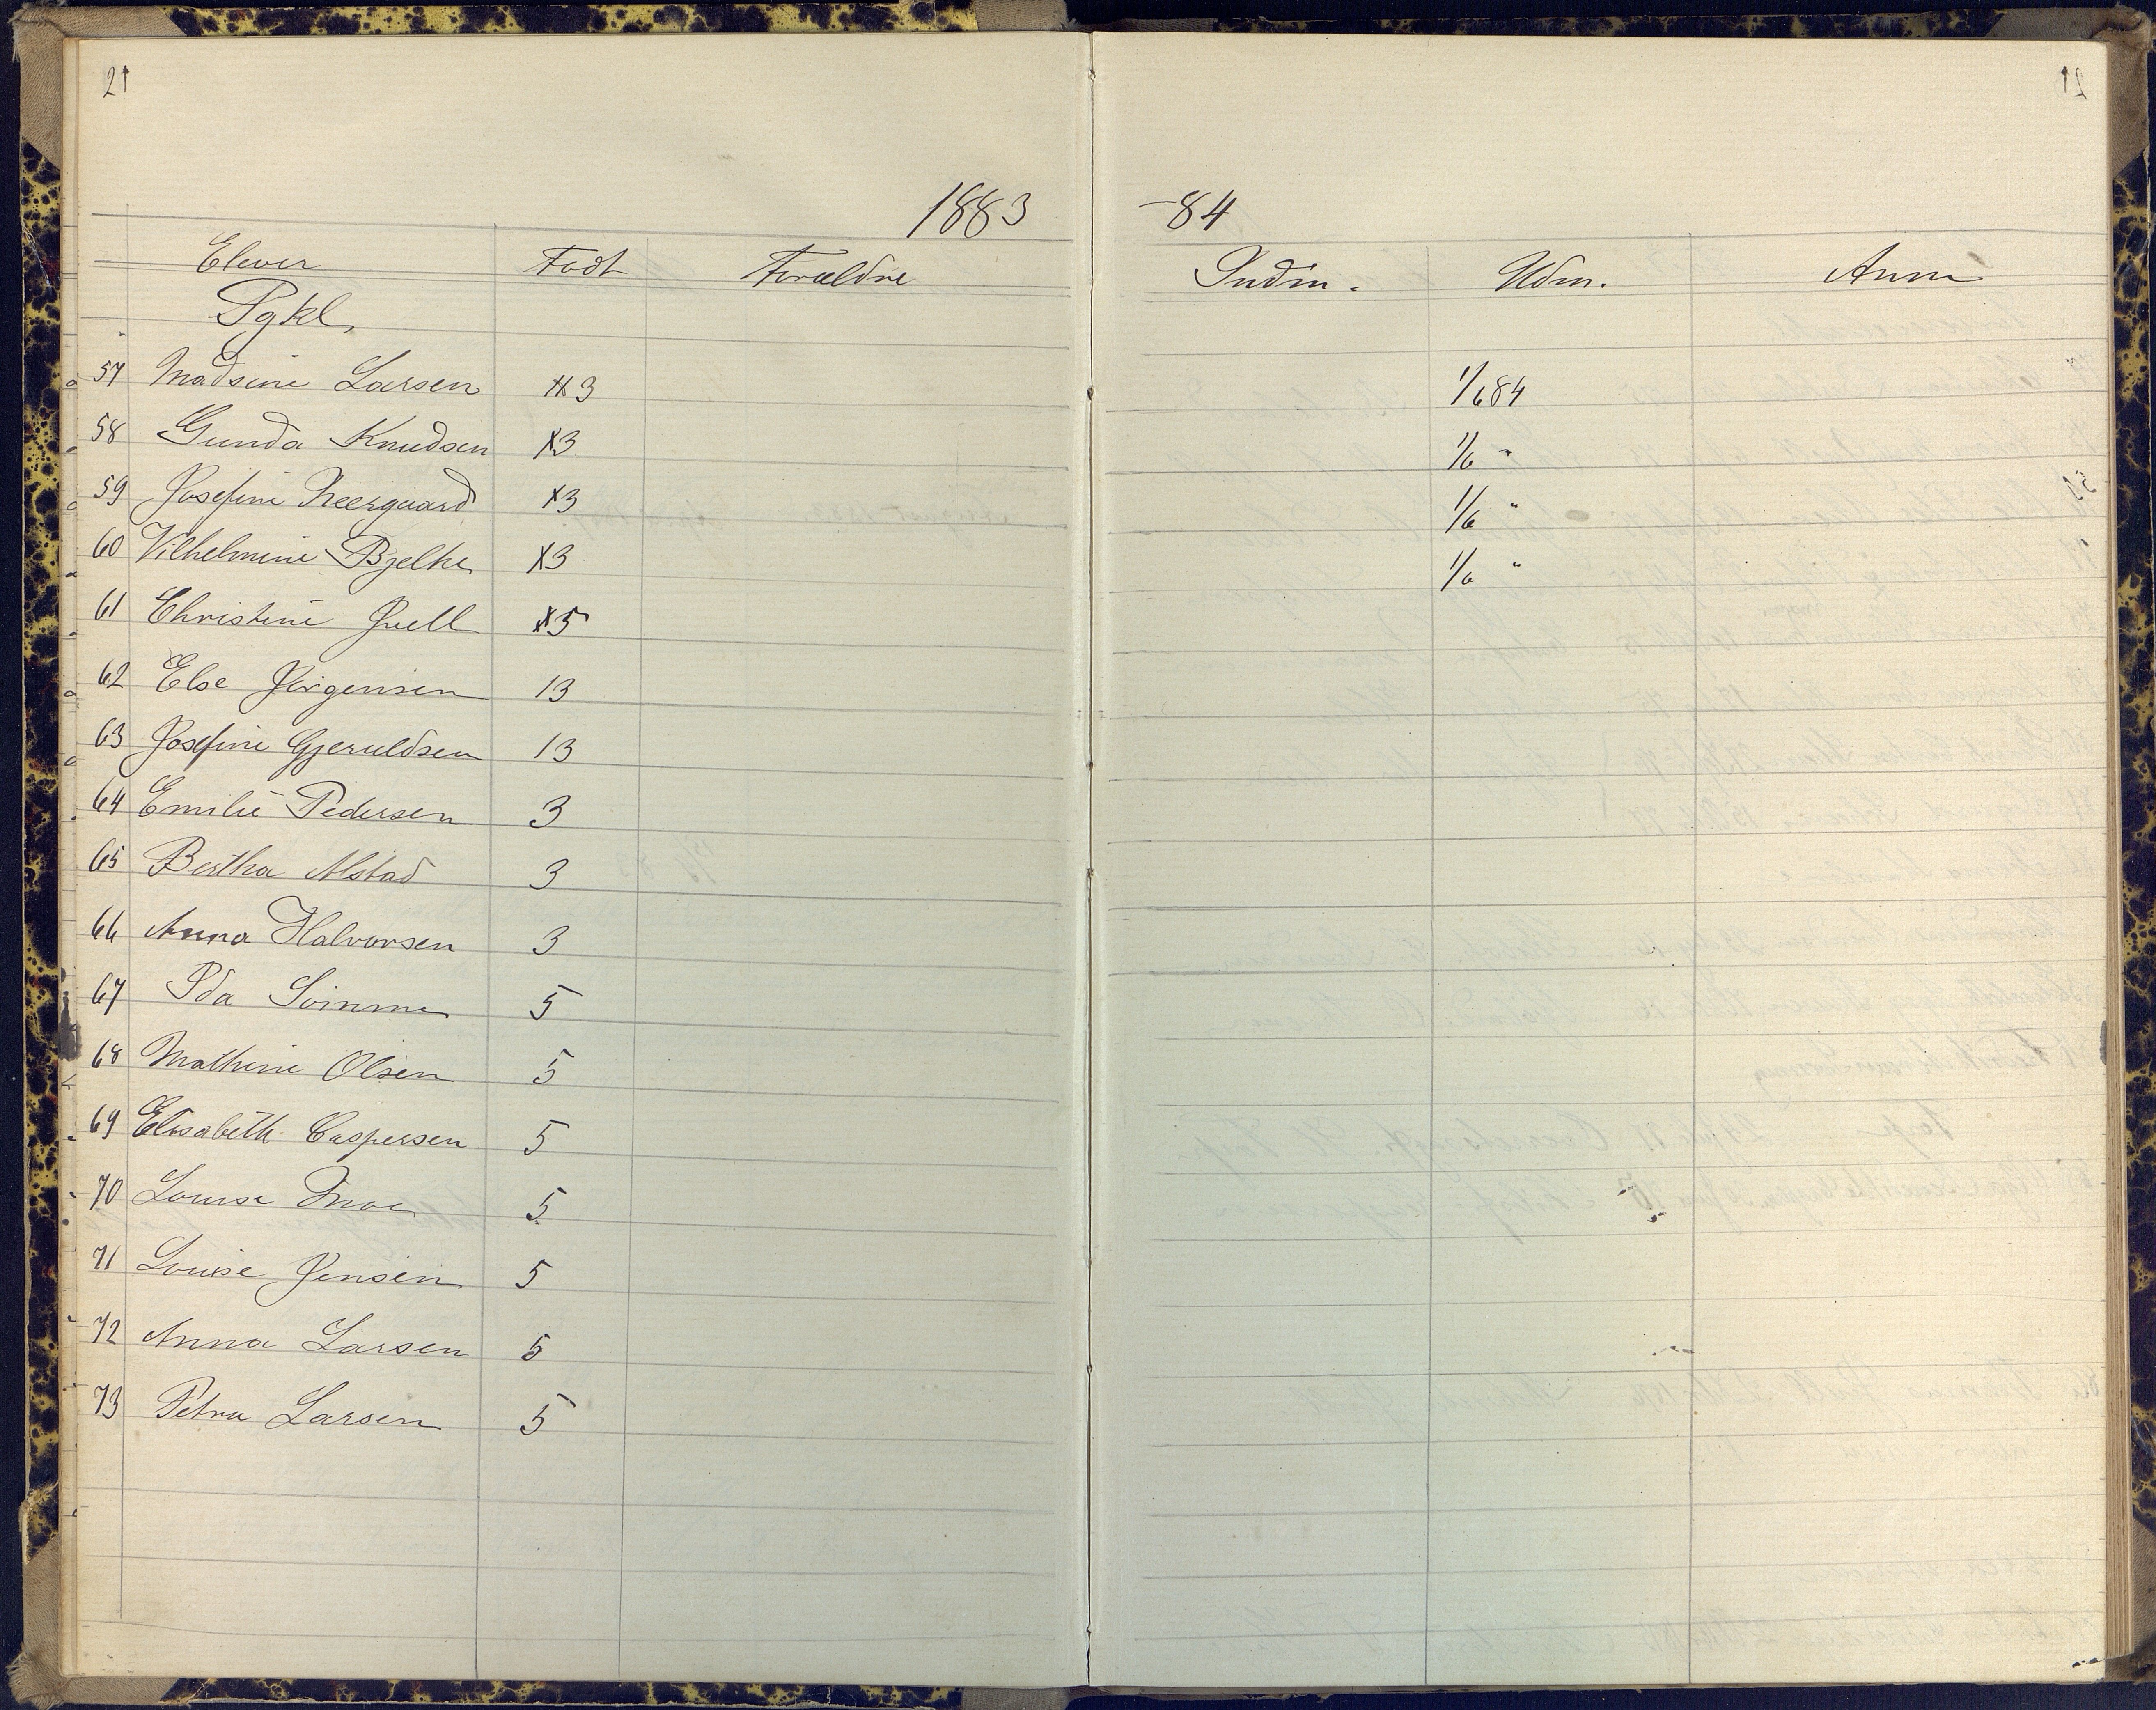 21
1883 -84
Elever Født Forældre Indm. Udm. Anm
Pgkl.
57 Madsine Larsen 3 1/6 84
58 Gunda Knudsen x3 1/6 "
59 Josefine Neergaard x3 1/6 "
60 Vilhelmine Bjelke x3 1/6 "
61 Christine Juell x5
62 Else Jörgensen 13
63 Josefine Gjeruldsen 13
64 Emilie Pedersen 3
65 Bertha Alstad 3
66 Anna Halvorsen 3
67 Ida 5
68 Mathine Olsen 5
69 Elisabeth Caspersen 5
70 Louise Moe 5
71 Louise Jensen 5
72 Anna Larsen 5
73 Petra Larsen 5